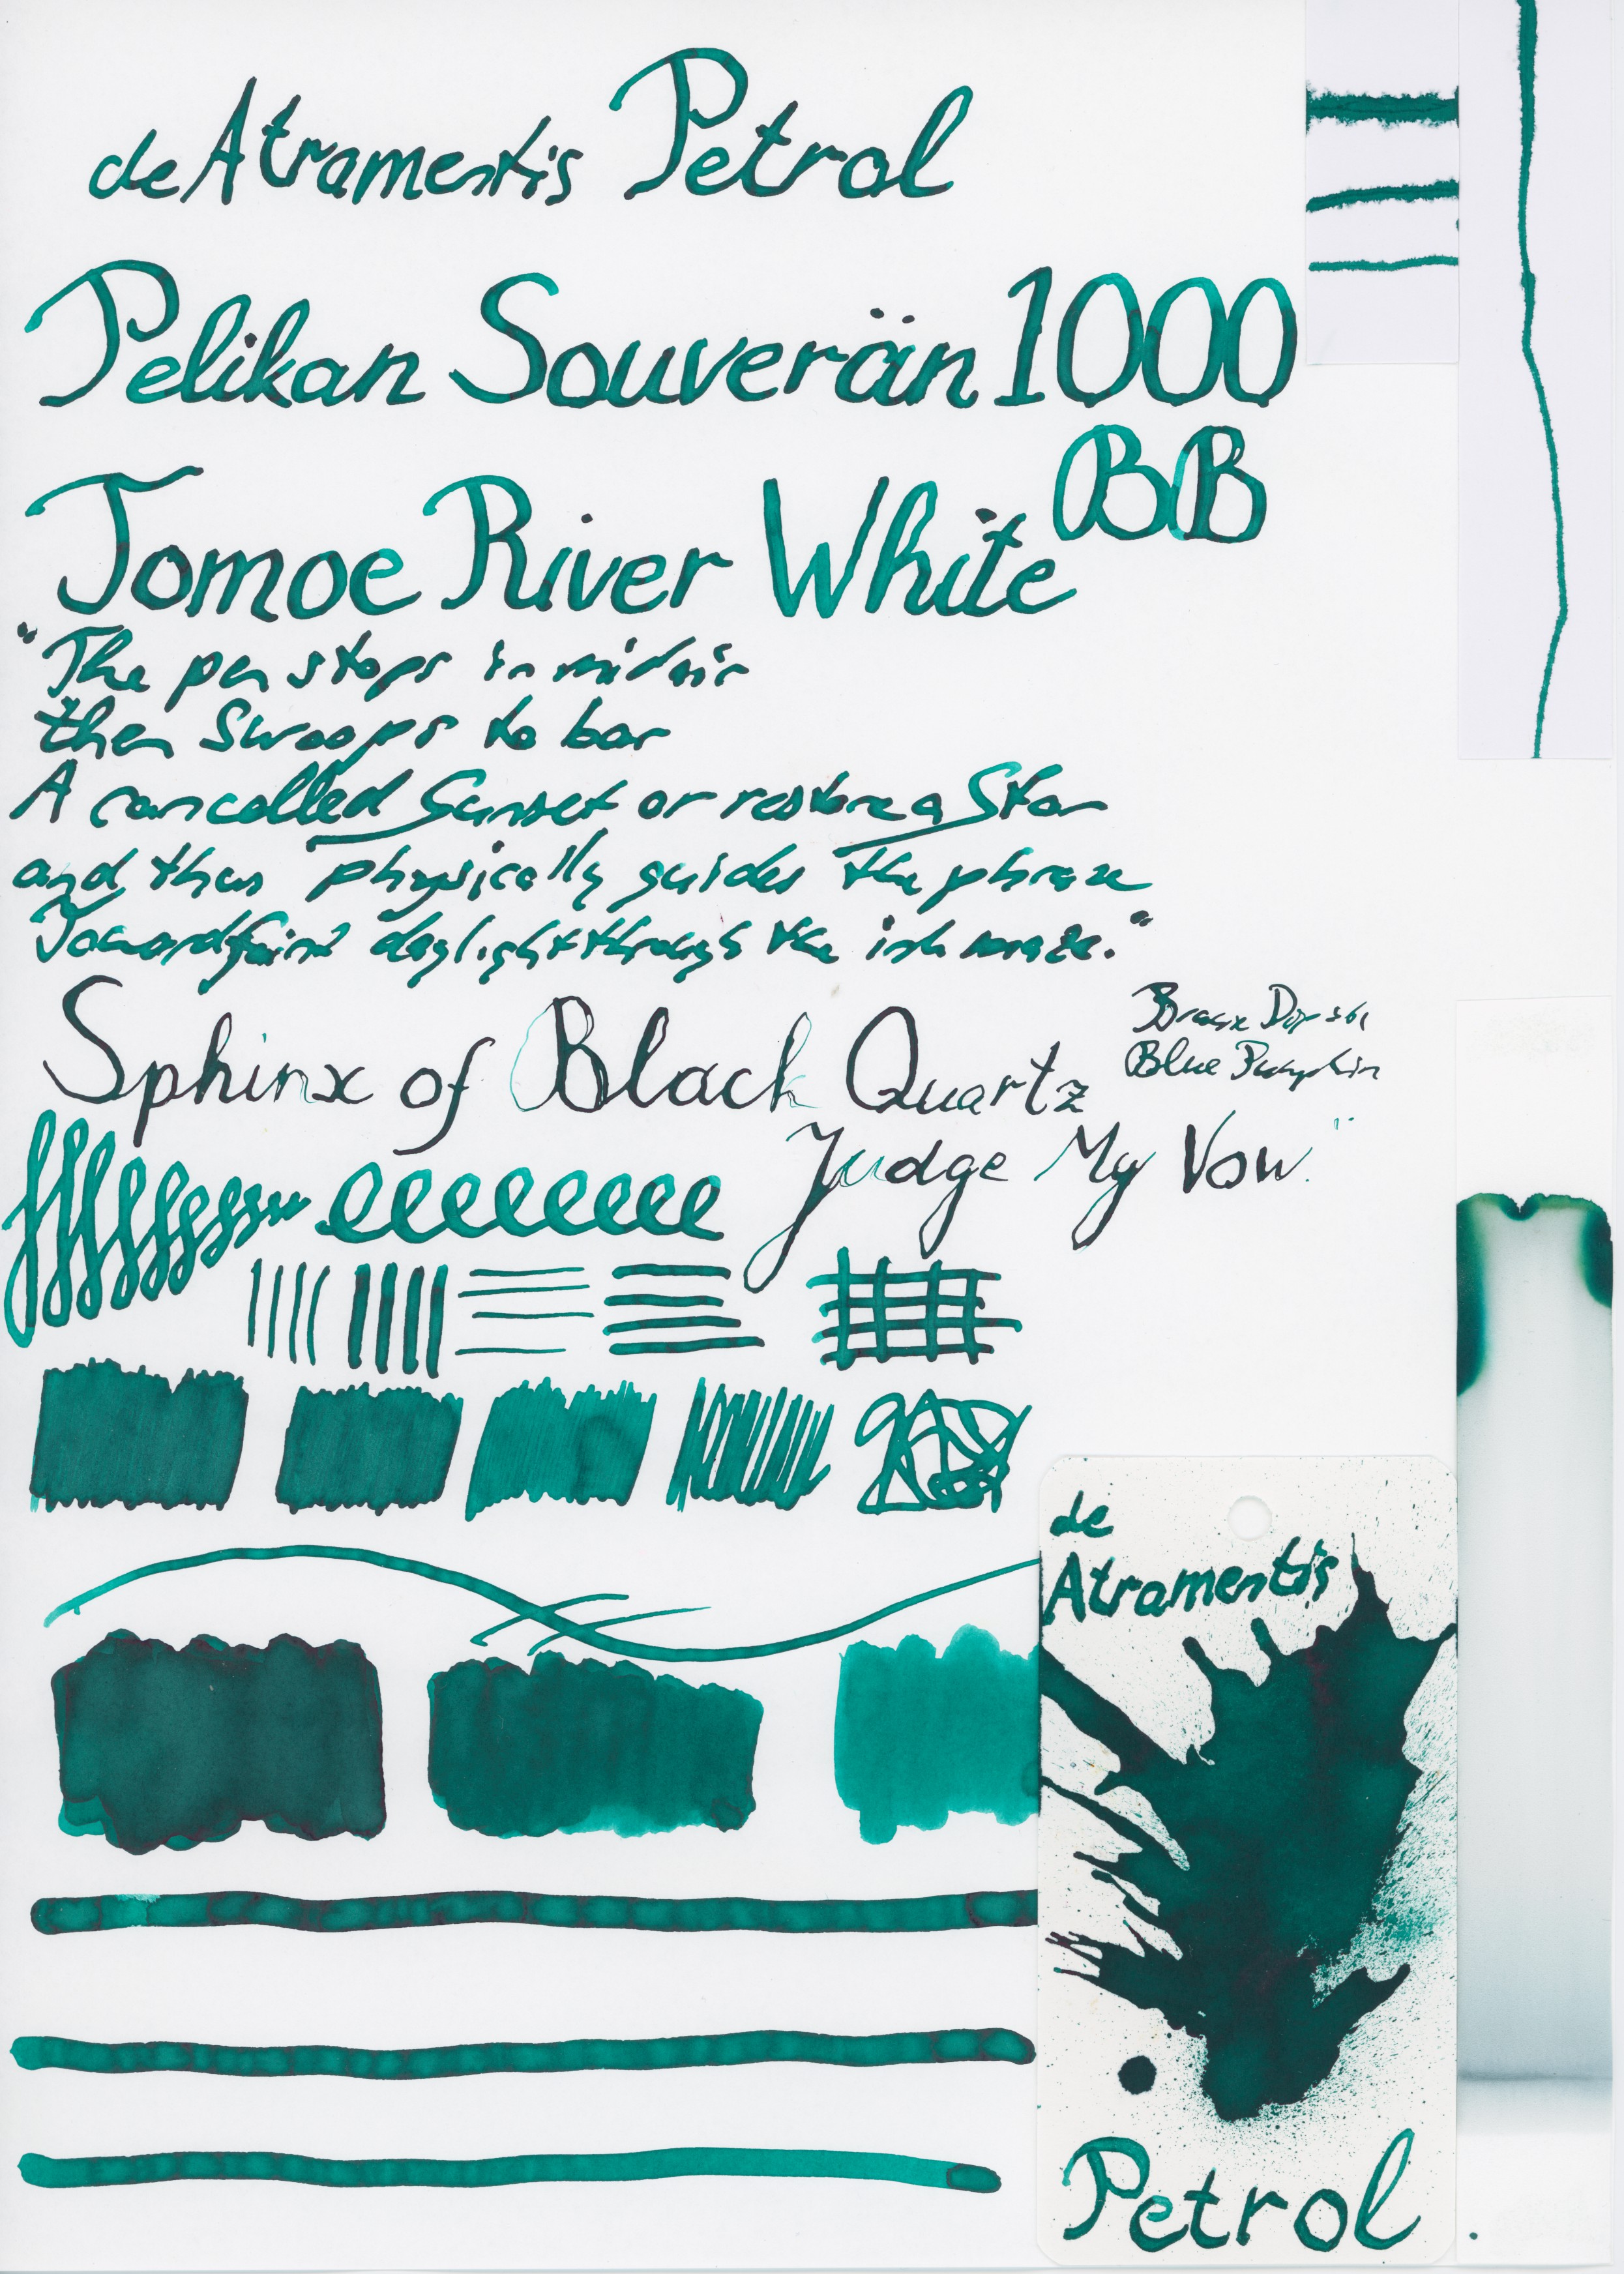 de Atramentis Petrol
Pelikan Souverän 1000
BB
Tomoe River White
"The pen stops in midair
then Swoops to bar
A cancelled Sunset or restore a Star
and thus physically guides the phrase
Toward faint daylight through the ink maze."
Sphinx of Black Quartz
Blue Pumpkin
Judge My Vow"
de
Atramentis
Petrol